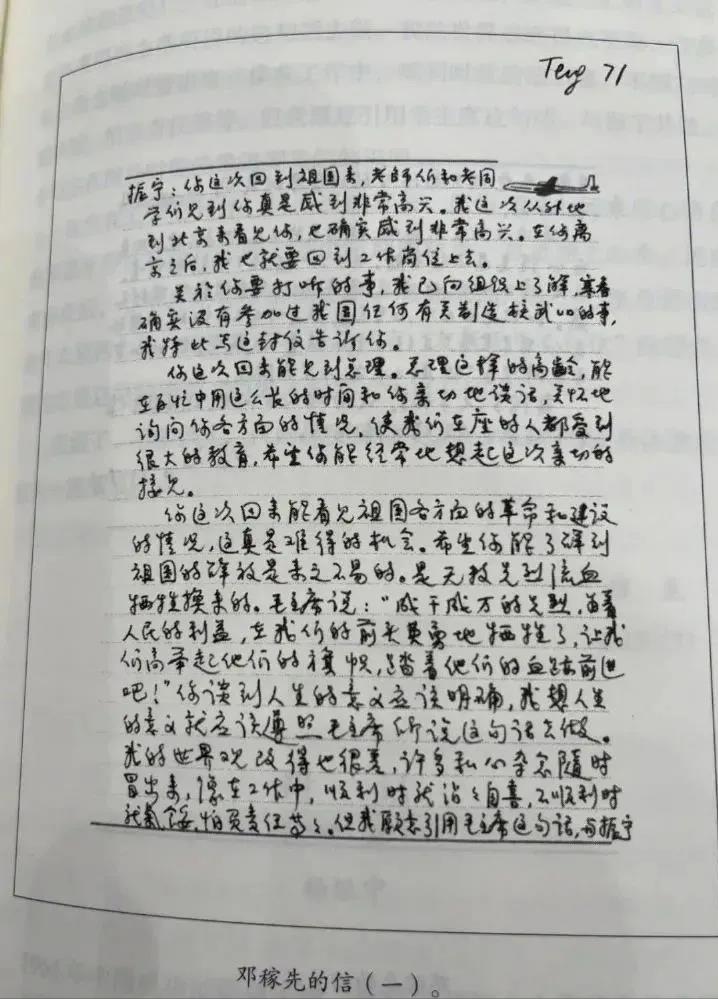 Teng 71
振宁：你这次回到祖国来，老师们和老同
学们见到你真是感到非常高兴。我这次从外地
到北京来看见你，也确实感到非常高兴。在你离
京之后，我也就要回到工作岗位上去。
关於你要打听的事，我已向组织上了解，寒春
确实没有参加过我国任何有关制造核武器的事，
我特此写这封信告诉你。
你这次回来能见到总理。总理这样的高龄，能
在百忙中用这么长的时间和你亲切地谈话，关怀地
询问你各方面的情况，使我们在座的人都受到
很大的教育，希望你能经常地想起这次亲切的
接见。
你这次回来能看见祖国各方面的革命和建设
的情况，这真是难得的机会。希望你能了解到
祖国的解放是来之不易的。是无数先烈流血
牺牲换来的。毛主席说：“成千成万的先烈，为着
人民的利益，在我们的前头英勇地牺牲了，让我
们高举起他们的旗帜，踏着他们的血迹前进
吧！”你谈到人生的意义应该明确，我想人生
的意义就应该遵照毛主席所说这句话去做。
我的世界观改得也很差，许多私心杂念随时
冒出来，像在工作中，顺利时就沾沾自喜，不顺利时
就气馁，怕负责任等等。但我愿意引用毛主席这句话，与振宁
邓稼先的信（一）。